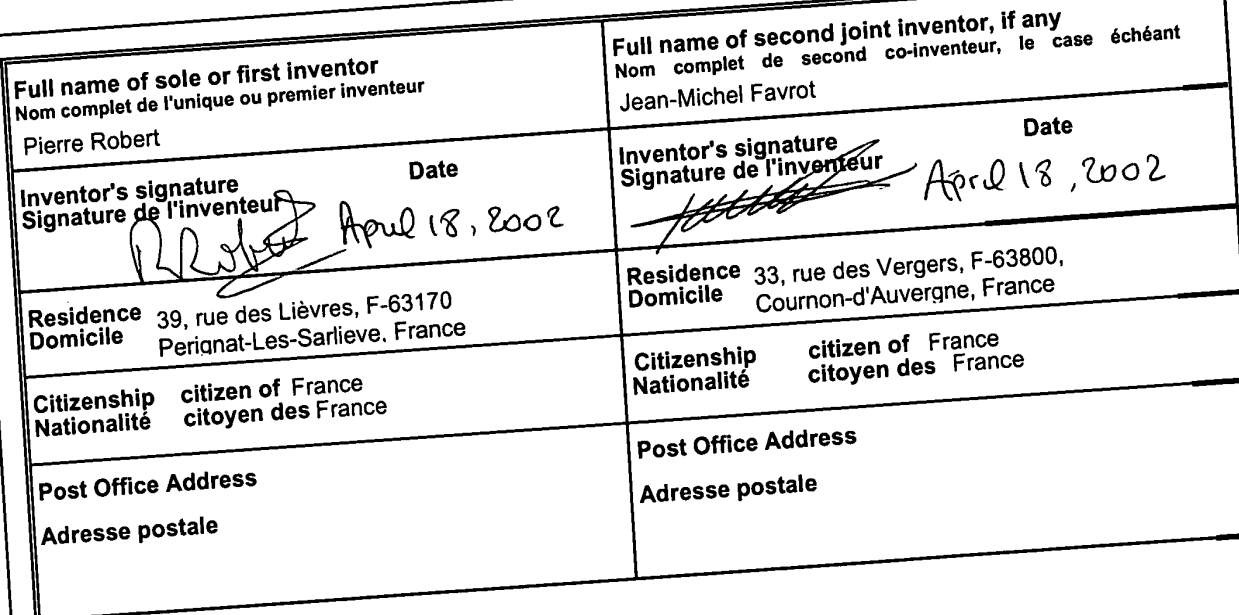 Full name of sole or first inventor
Nom complet de l'unique ou premier inventeur
Pierre Robert
Inventor's signature Date
Signature de l'inventeur
PRobert April 18, 2002
Residence 39, rue des Lièvres, F-63170
Domicile Perignat-Les-Sarlieve, France
Citizenship citizen of France
Nationalité citoyen des France
Post Office Address
Adresse postale
Full name of second joint inventor, if any
Nom complet de second co-inventeur, le case échéant
Jean-Michel Favrot
Inventor's signature Date
Signature de l'inventeur
April 18, 2002
Residence 33, rue des Vergers, F-63800,
Domicile Cournon-d'Auvergne, France
Citizenship citizen of France
Nationalité citoyen des France
Post Office Address
Adresse postale